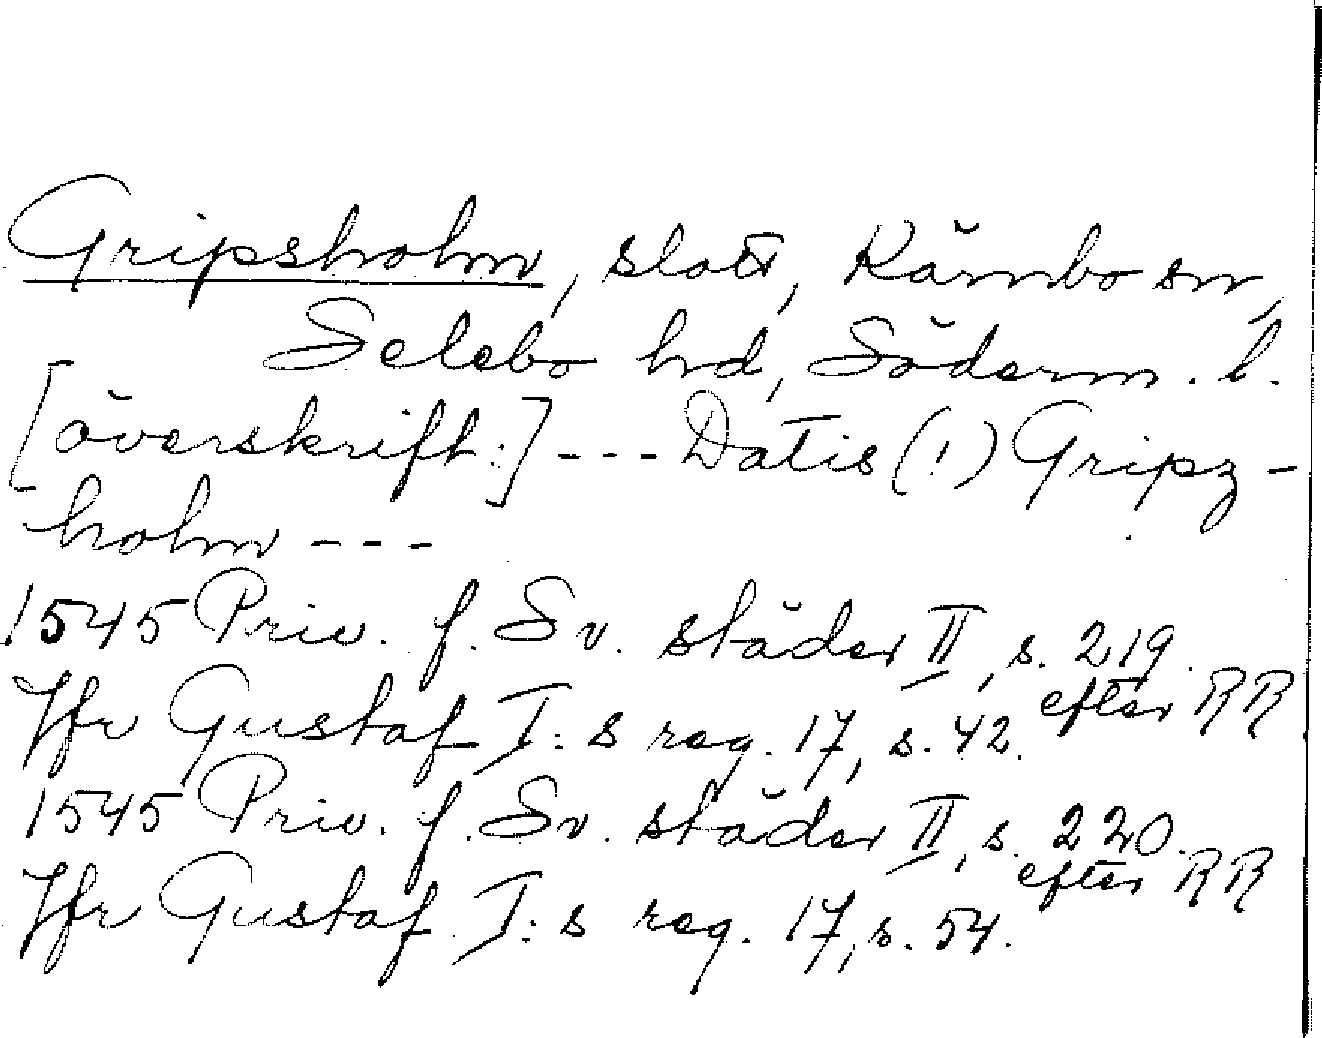 Gripsholm, slott, Kärnbo sn,
Selebo hd, Söderm. l.
[överskrift:] --- Datis (!) Gripz-
holm ---
1545 Priv. f. Sv. städer II, s. 219.
efter RR
Jfr Gustaf I:s reg. 17, s. 42.
1545 Priv. f. Sv. städer II, s. 220.
efter RR
Jfr Gustaf I:s reg. 17, s. 54.